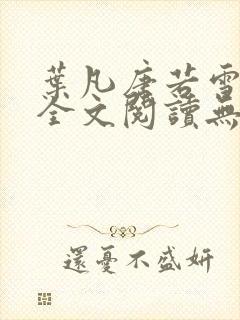 葉凡唐若雪
全文閱讀無
還憂不盛妍